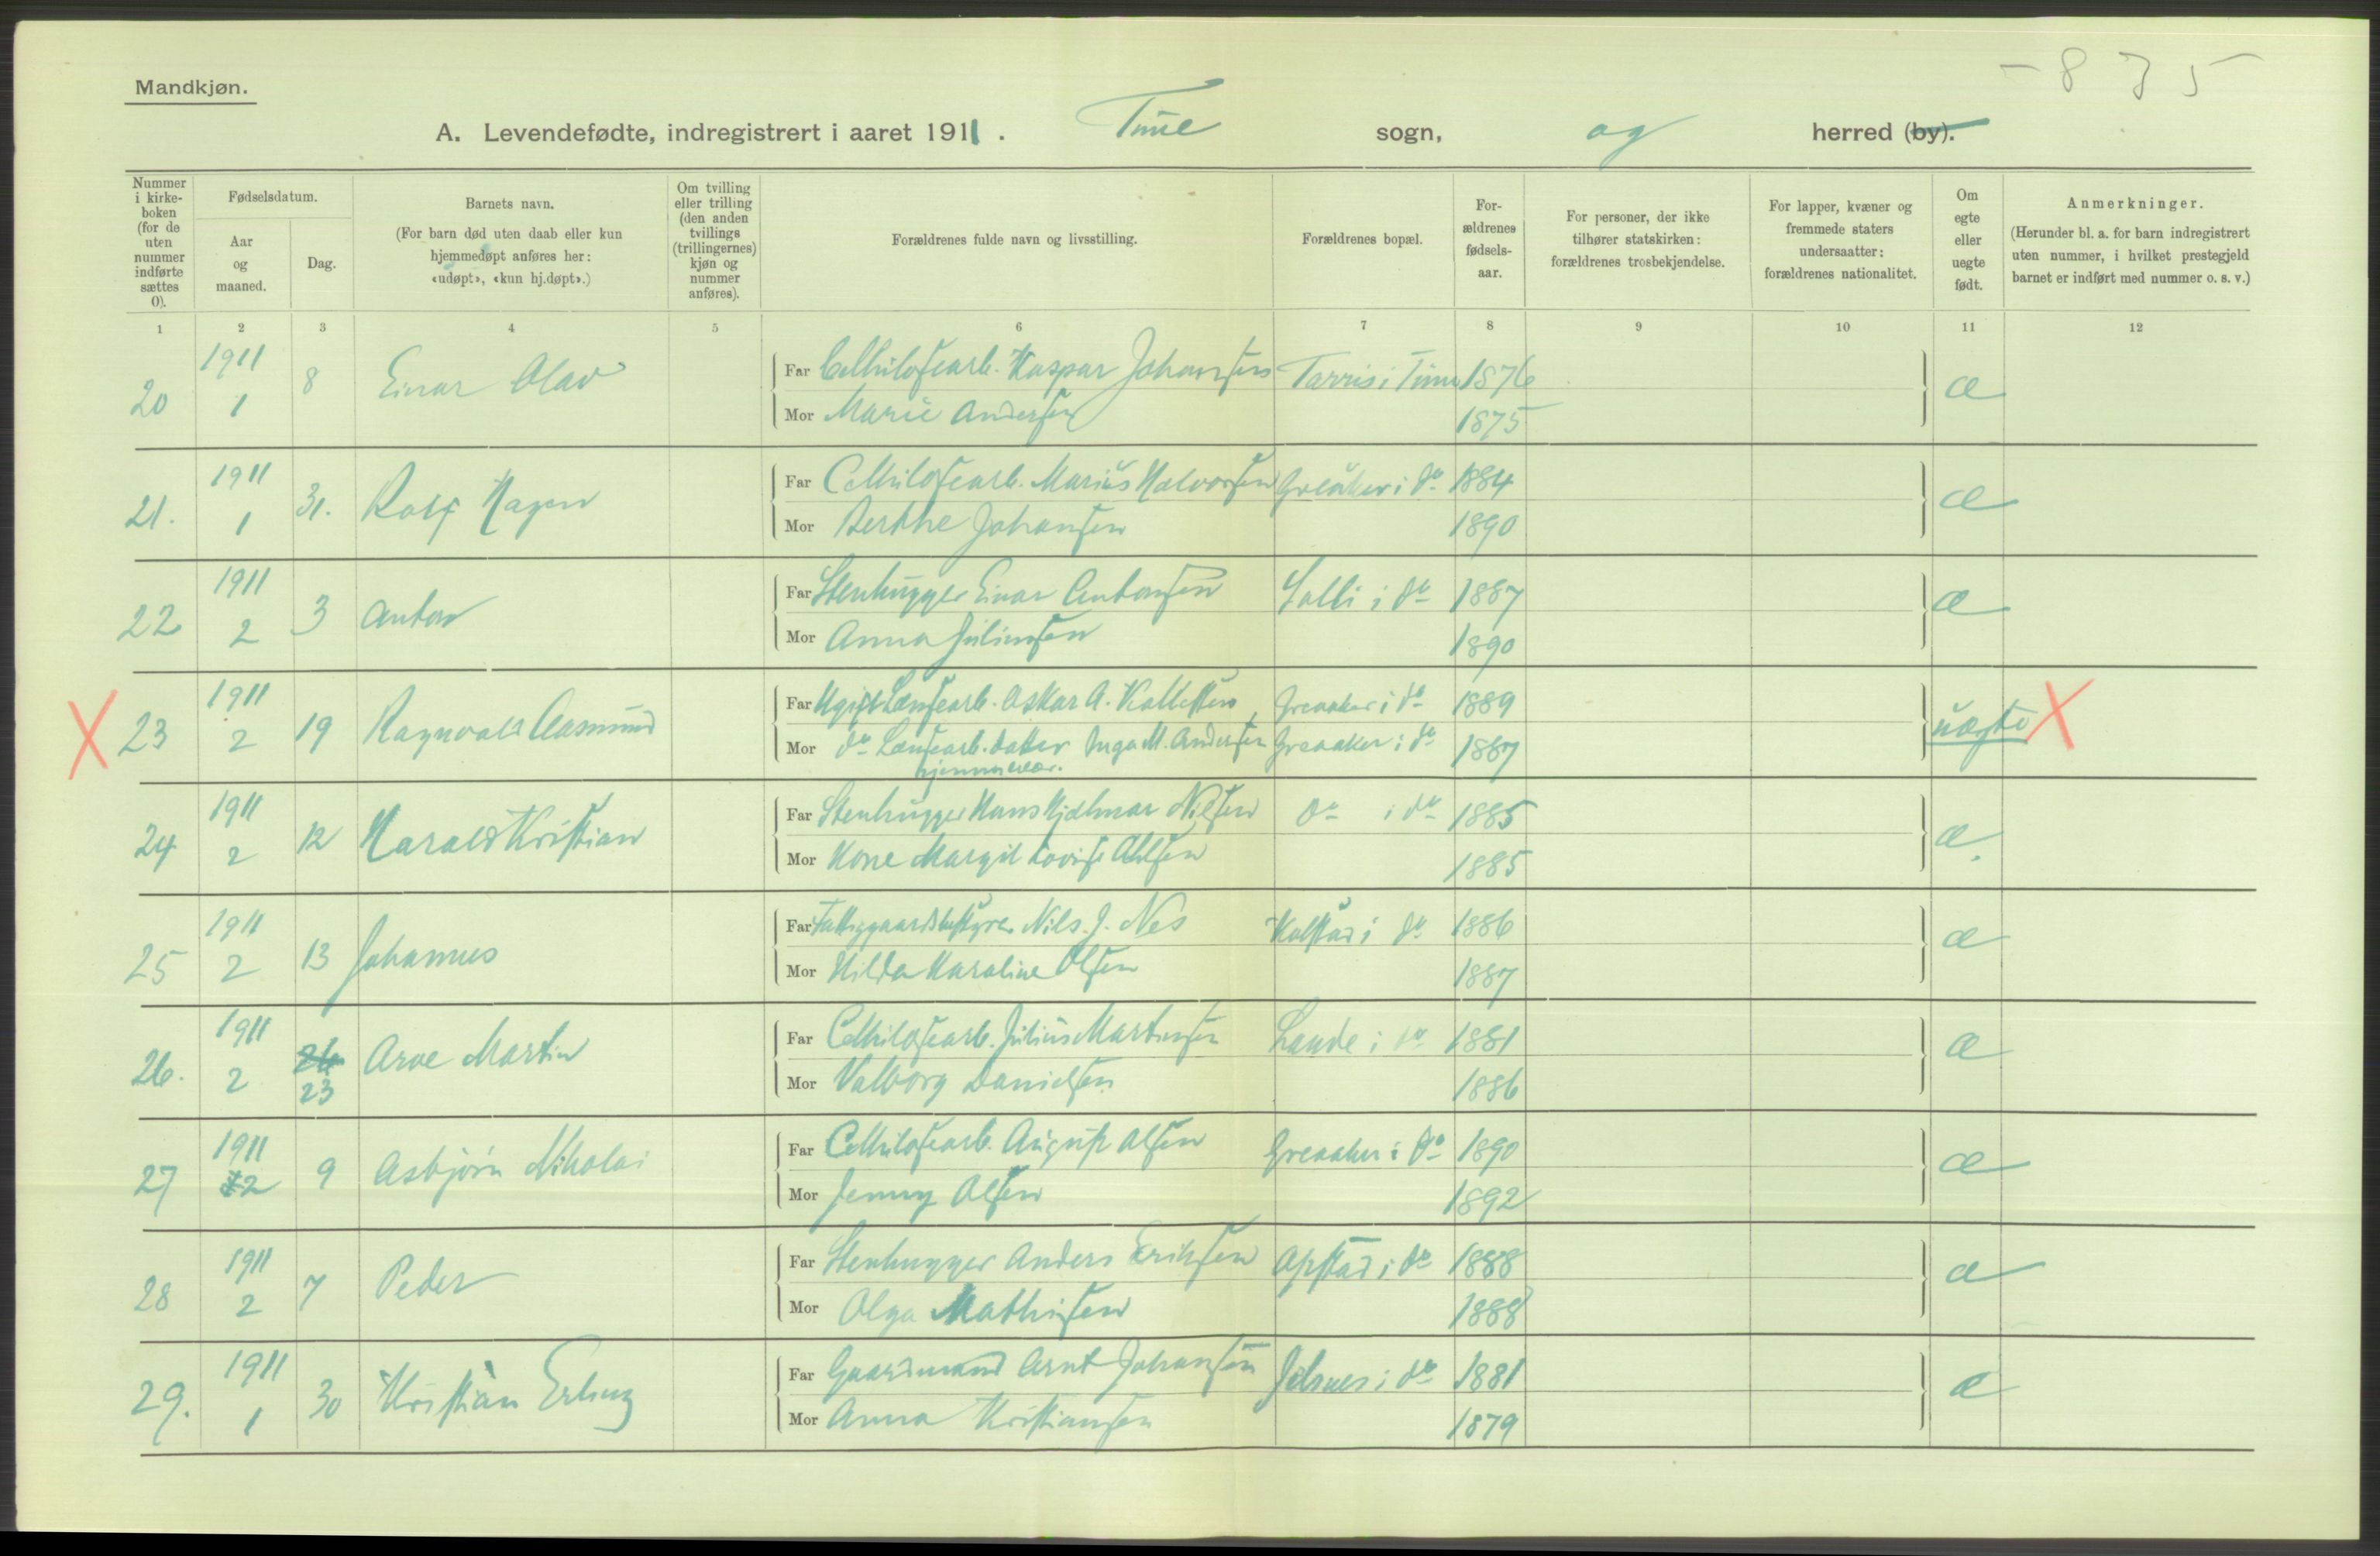 - 875
Mandkjøn.
A. Levendefødte, indregistrert i aaret 1911. Tune sogn, og herred (by).
Nummer i kirkeboken (for de uten nummer indførte sættes 0).
Fødselsdatum.
Aar og maaned.
Dag.
Barnets navn.
(For barn død uten daab eller kun hjemmedøpt anføres her: «udøpt», «kun hj.døpt».)
Om tvilling eller trilling (den anden tvillings (trillingernes) kjøn og nummer anføres).
Forældrenes fulde navn og livsstilling.
Forældrenes bopæl.
Forældrenes fødselsaar.
For personer, der ikke tilhører statskirken: forældrenes trosbekjendelse.
For lapper, kvæner og fremmede staters undersaatter: forældrenes nationalitet.
Om egte eller uegte født.
Anmerkninger.
(Herunder bl. a. for barn indregistrert uten nummer, i hvilket prestegjeld barnet er indført med nummer o. s. v.)
1 2 3 4 5 6 7 8 9 10 11 12
20 1911 1 8 Einar Olav Far Cellulosearb. Kaspar Johansen Tarris i Tune 1876 æ
Mor Marie Andersen 1875
21. 1911 1 31. Rolf Hagen Far Cellulosearb. Marius Halvorsen Greåker i do 1884 æ
Mor Berthe Johansen 1890
22 1911 2 3 Anton Far Stenhugger Einar Antonsen Solli i do 1887 æ
Mor Anna Juliussen 1890
X 23 1911 2 19 Ragnvald Aasmund Far Ugift Løsearb. Oskar A. Greaaker i do 1889 uægte X
Mor do datter Inga M. Andersen Greaaker i do 1887
hjemmevær.
24 1911 2 12 Harald Kristian Far Stenhugger Hans Hjalmar Nilsen do i do 1885 æ.
Mor Kone Margit Lovise Ahlsen 1885
25 1911 2 13 Johannes Far Fattiggaardsbestyrer Nils J. Nes Kalstad i do 1886 æ
Mor Hilda Karoline Olsen 1887
26. 1911 2 26 23 Arve Martin Far Cellulosearb. Julius Martinsen Lande i do 1881 æ
Mor Valborg Danielsen 1886
27 1911 2 9 Asbjørn Nikolai Far Cellulosearb. August Olsen Greaaker i do 1890 æ
Mor Jenny Olsen 1892
28 1911 2 7 Peder Far Stenhugger Anders Eriksen Opstad i do 1888 æ
Mor Olga Mathisen 1888
29. 1911 1 30 Kristian Erling Far Gaardmand Arnt Johansen Jelsnes i do 1881 æ
Mor Anna Kristiansen 1879